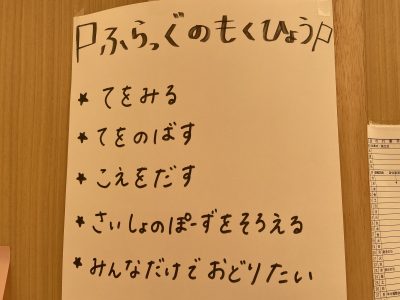 ふらっぐのもくひょう
★ てをみる
★ てをのばす
★ こえをだす
★ さいしょのぽーずをそろえる
★ みんなだけでおどりたい